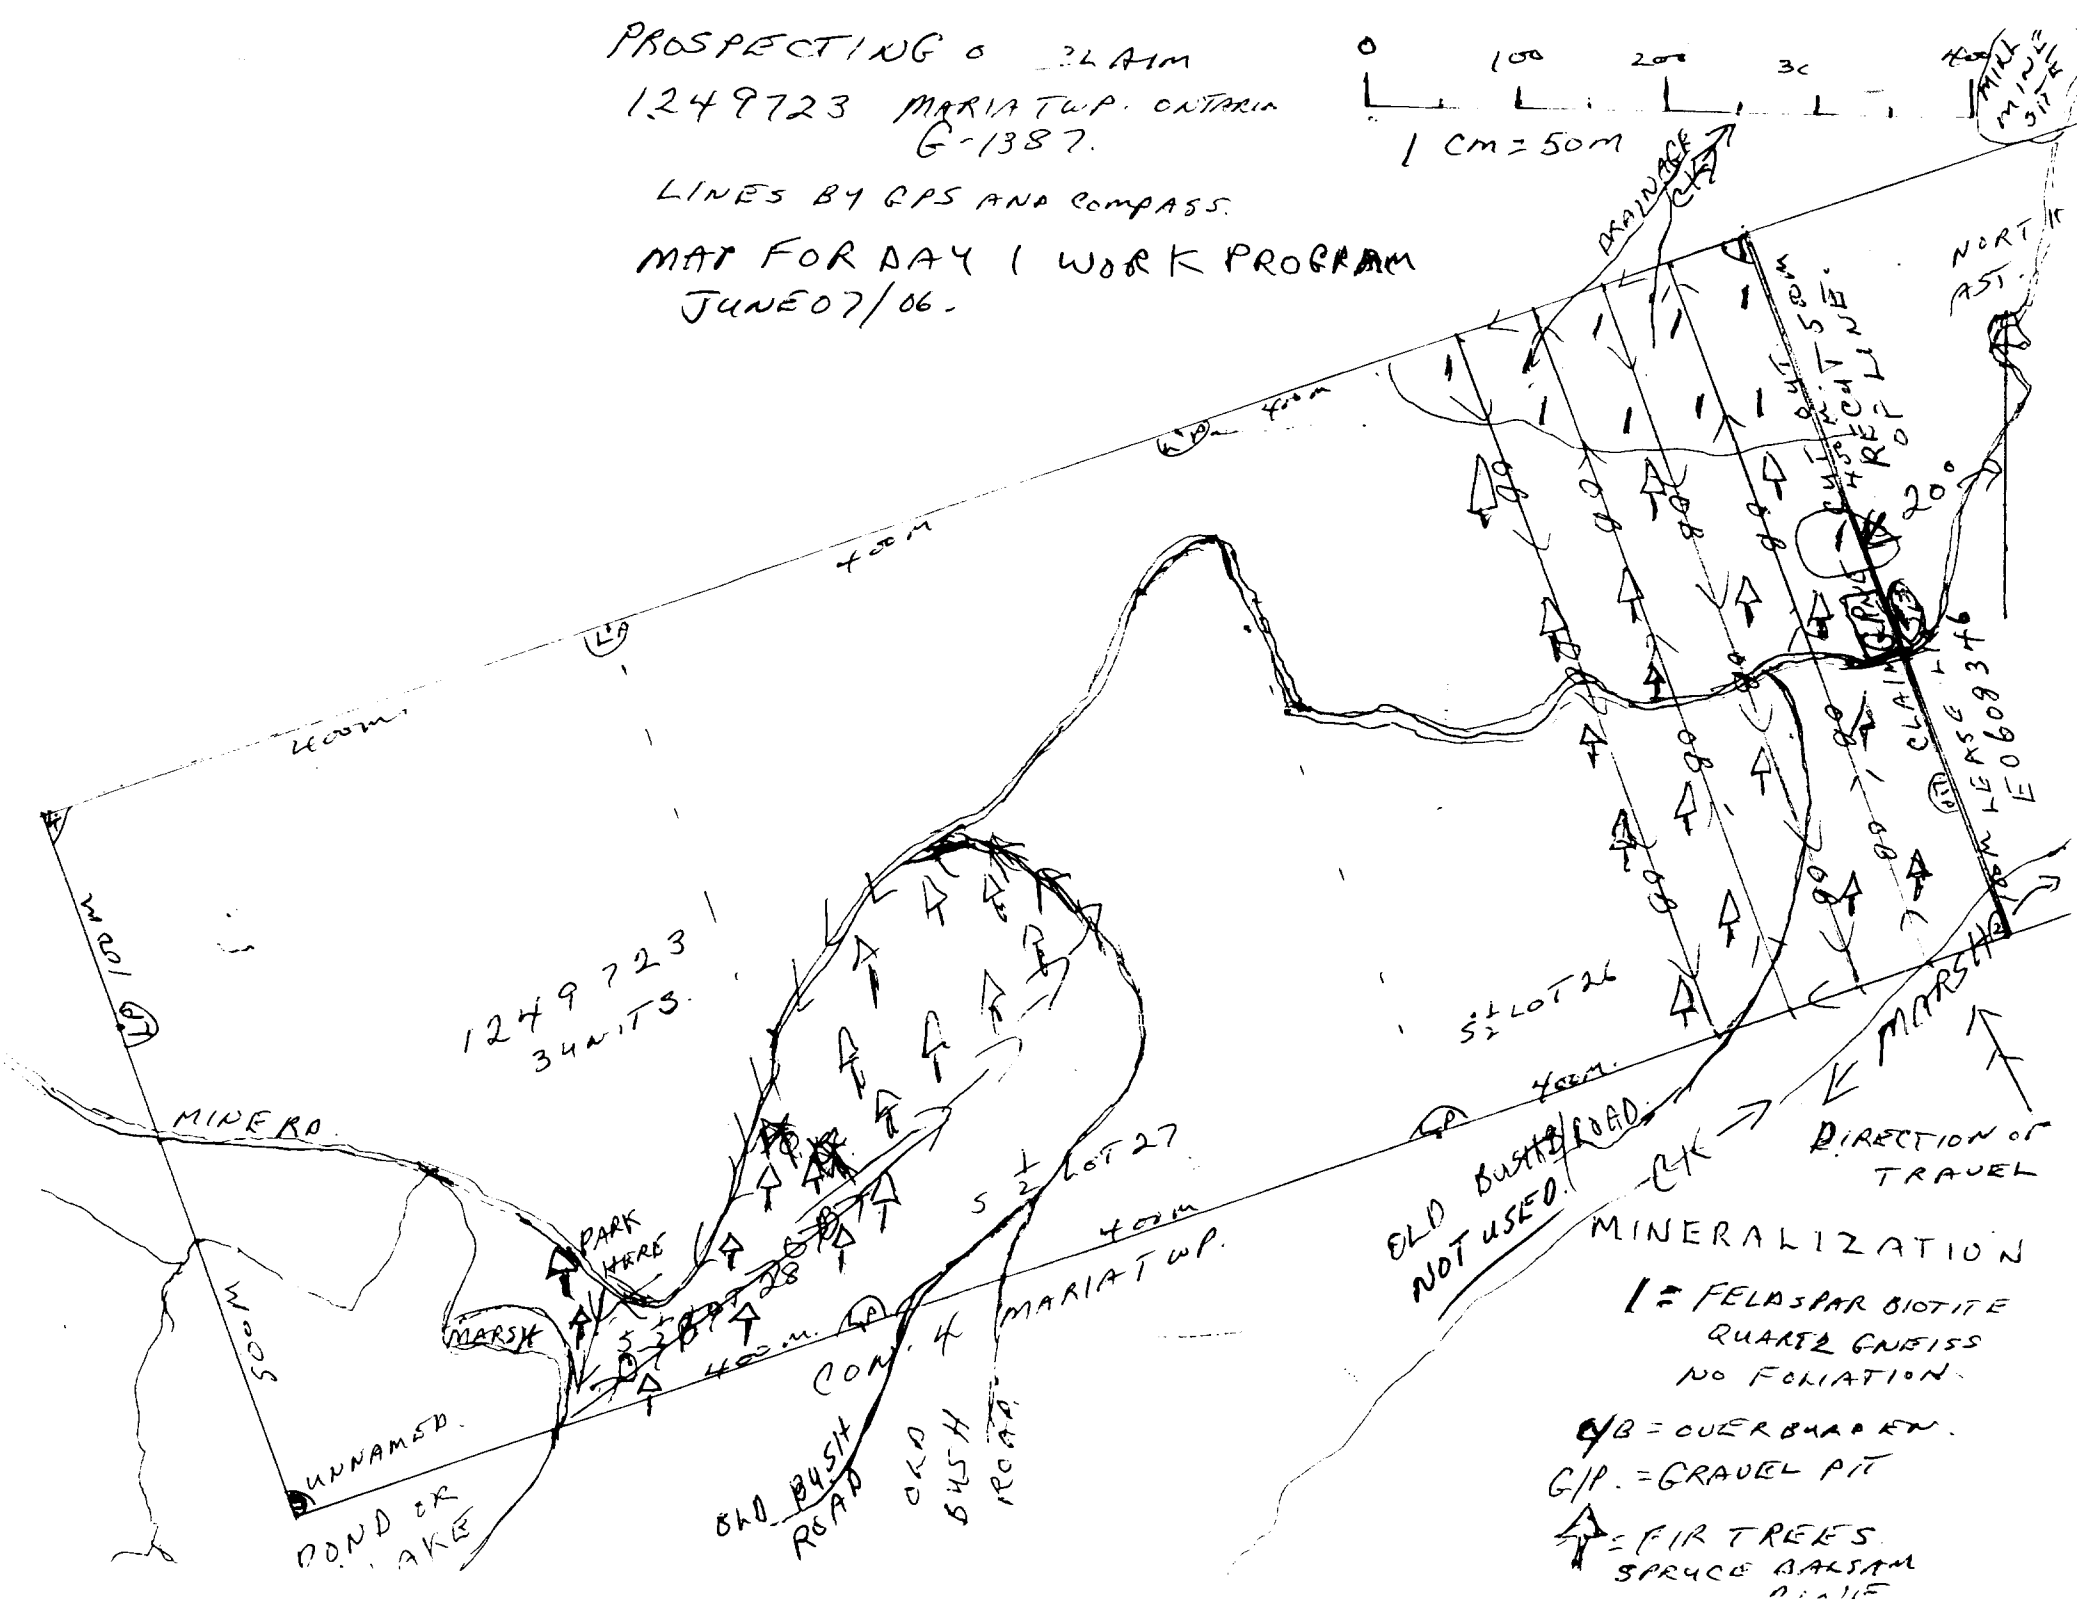 PROSPECTING CLAIM
1249723 MARIA TWP. ONTARIO
G-1387.
LINES BY GPS AND COMPASS.
MAP FOR DAY 1 WORK PROGRAM
JUNE 07/06.
0 100 200 30 400
1 CM = 50M
MINE
SITE
DRAINAGE
CK
NORTH
AST.
CUT 500M
RECUT
OF LINE
20°
CLAIM
LEASE
E0608346
LP
400m
400m
LP
400m
100 M
LP
500 M
1249723
3 UNITS.
MINE RD.
PARK
HERE
MARSH
S 1/2 LOT 28
O B
S 1/2 LOT 27
S 1/2 LOT 26
400m.
LP
400m
LP
400m.
CON. 4 MARIA TWP.
UNNAMED.
POND OR
LAKE
OLD BUSH
ROAD
OLD
BUSH
ROAD.
OLD BUSH ROAD.
NOT USED.
CK
MARSH
DIRECTION OF
TRAVEL
MINERALIZATION
1 = FELDSPAR BIOTITE
QUARTZ GNEISS
NO FOLIATION.
O/B = OVERBURDEN.
G/P. = GRAVEL PIT
= FIR TREES
SPRUCE BALSAM